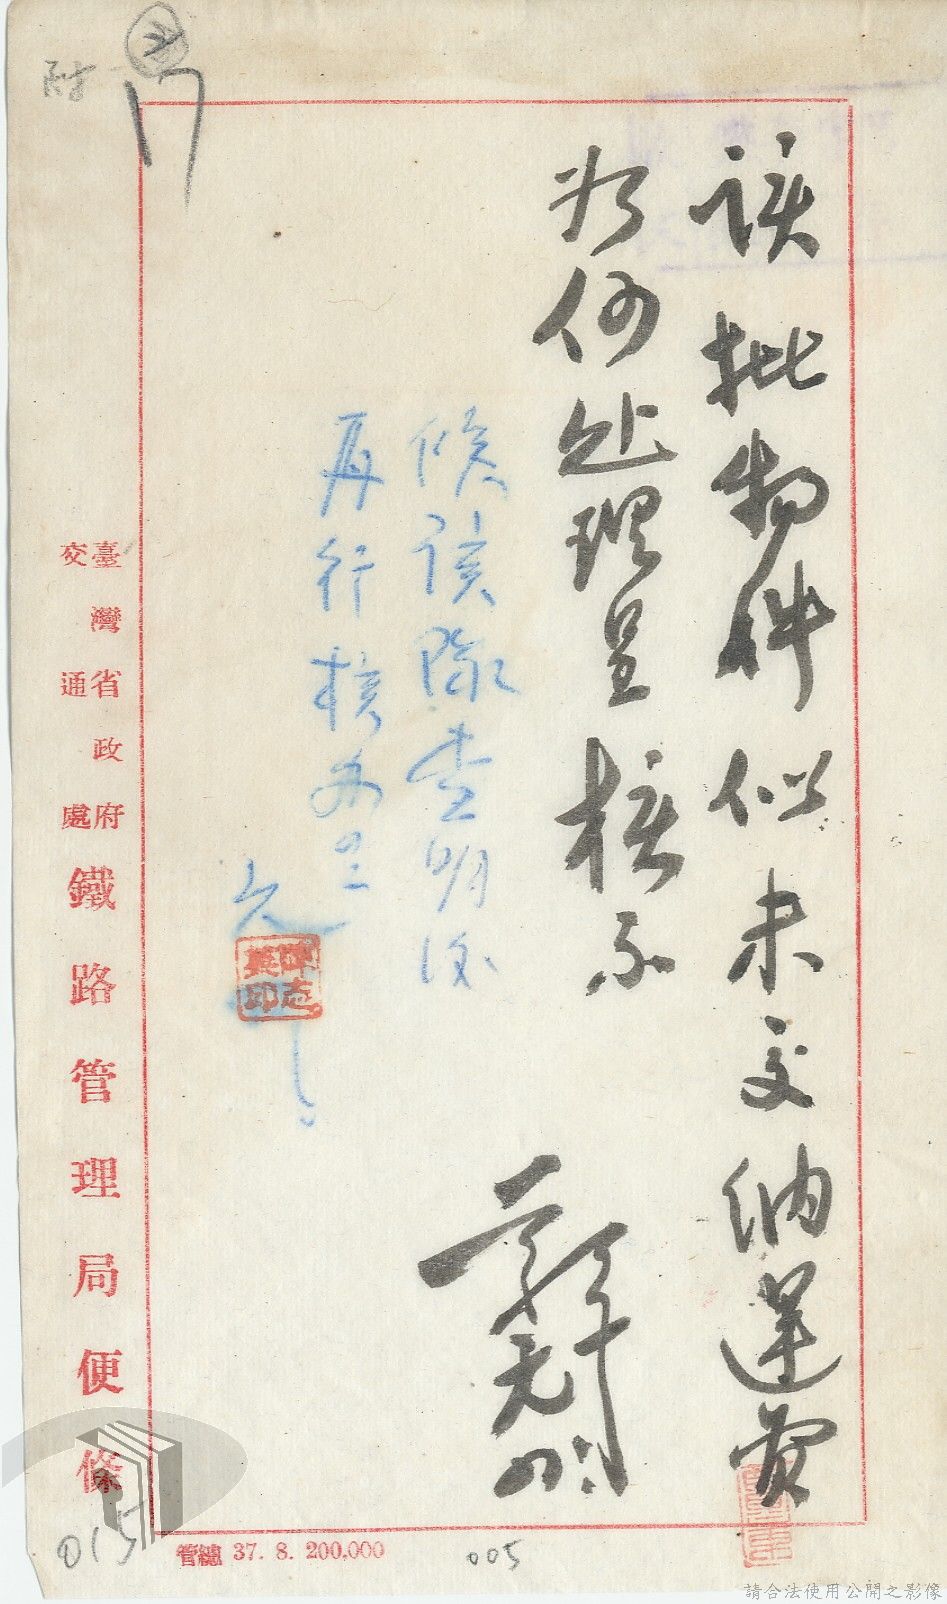 附
該批物件似未交納運費
如何処理呈核示
候該隊查明後
再行核办
臺灣省政府
交通處
鐵路管理局便條
管總 37. 8. 200,000
005
015
請合法使用公開之影像